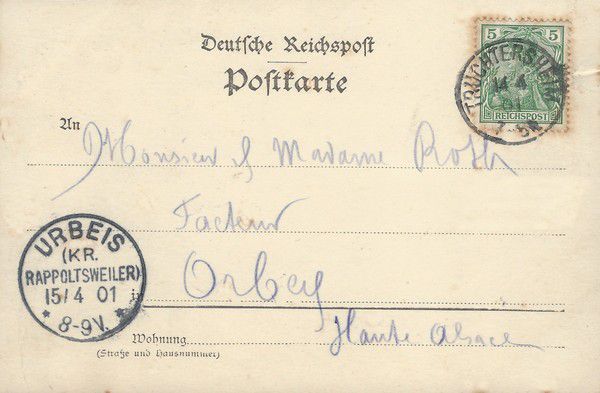 Deutsche Reichspost
Postkarte
5 5
REICHSPOST
TRUCHTERSHEIM
14 4
01
An Monsieur & Madame Roth
Facteur
URBEIS
(KR.
RAPPOLTSWEILER)
15/4 01
* 8-9V. *
in Orbey
Wohnung Haute Alsace
(Straße und Hausnummer)